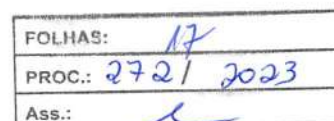 FOLHAS: 17
PROC.: 272/ 2023
Ass.: